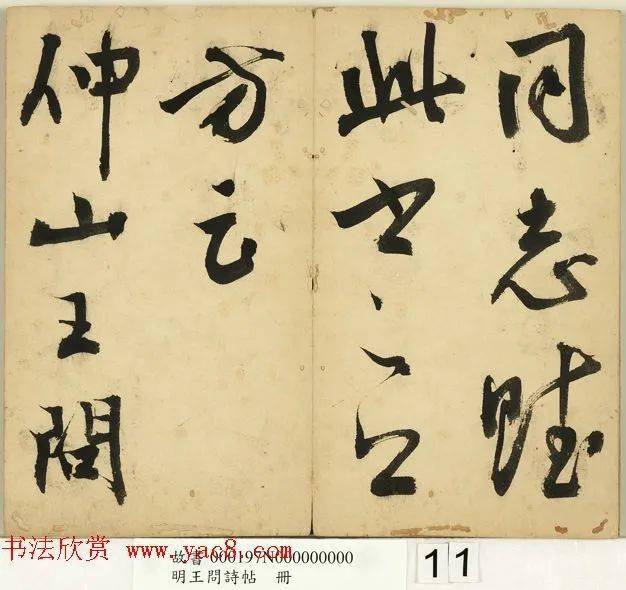 同志賦
此
云
仲山王問
书法欣赏 www.yac8.com
故書 000197N000000000
明王問詩帖 冊
11